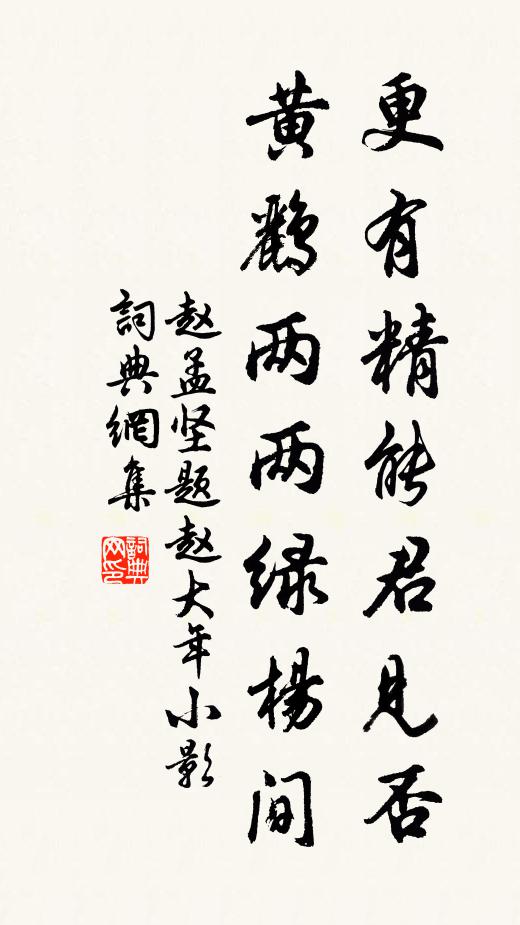 更有精能君见否
黄鹂两两绿杨间
赵孟坚题赵大年小影
詞典網集
詞典网印